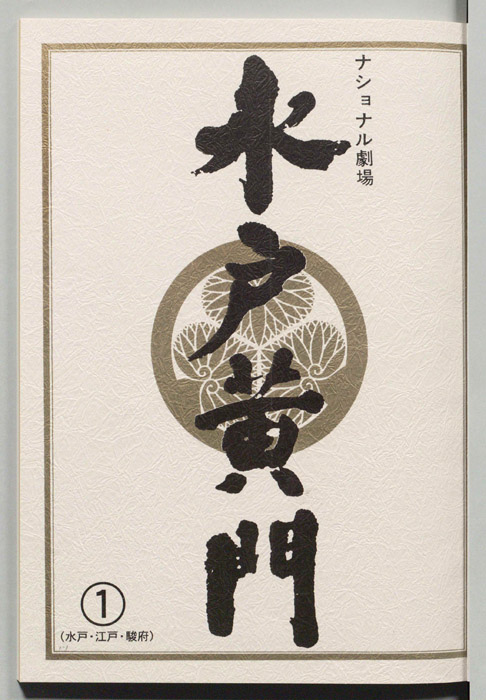 ナショナル劇場
水戸黄門
①
(水戸・江戸・駿府)